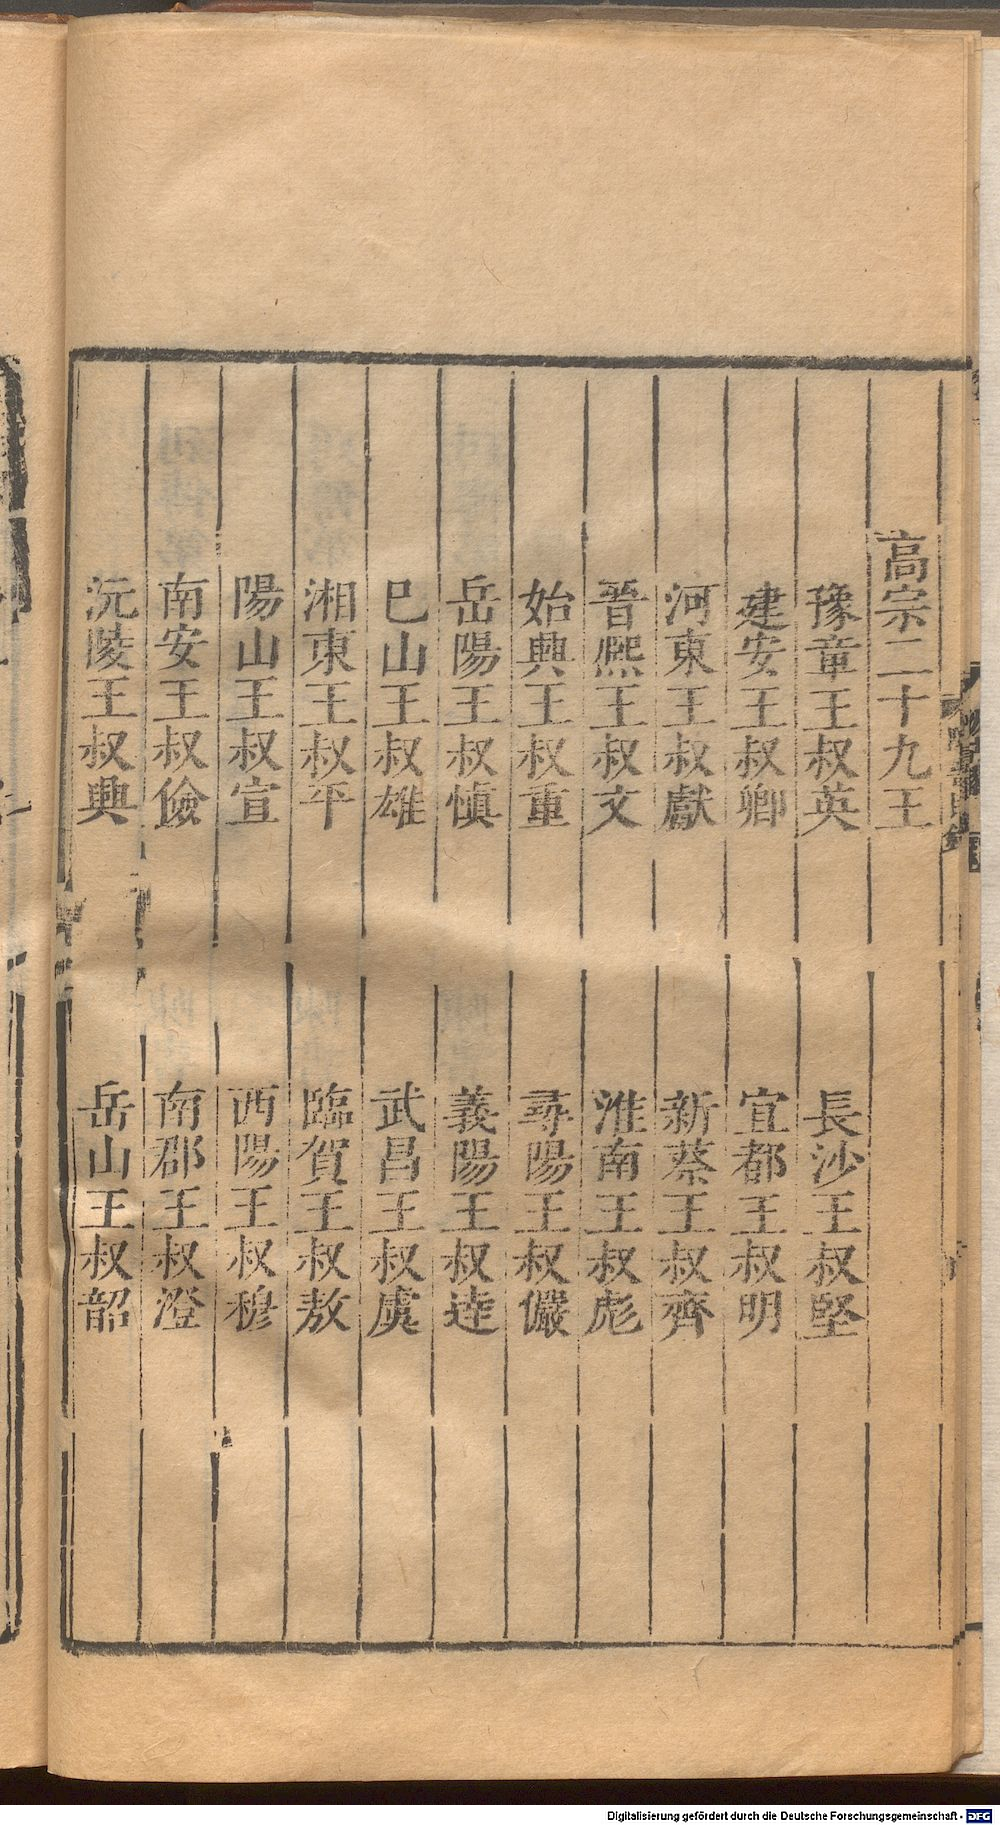 高宗二十九王
豫章王叔英 長沙王叔堅
建安王叔卿 宜都王叔明
河東王叔獻 新蔡王叔齊
晉熙王叔文 淮南王叔彪
始興王叔重 尋陽王叔儼
岳陽王叔慎 義陽王叔逵
巴山王叔雄 武昌王叔虞
湘東王叔平 臨賀王叔敖
陽山王叔宣 西陽王叔穆
南安王叔儉 南郡王叔澄
沅陵王叔興 岳山王叔韶
Digitalisierung gefördert durch die Deutsche Forschungsgemeinschaft - DFG